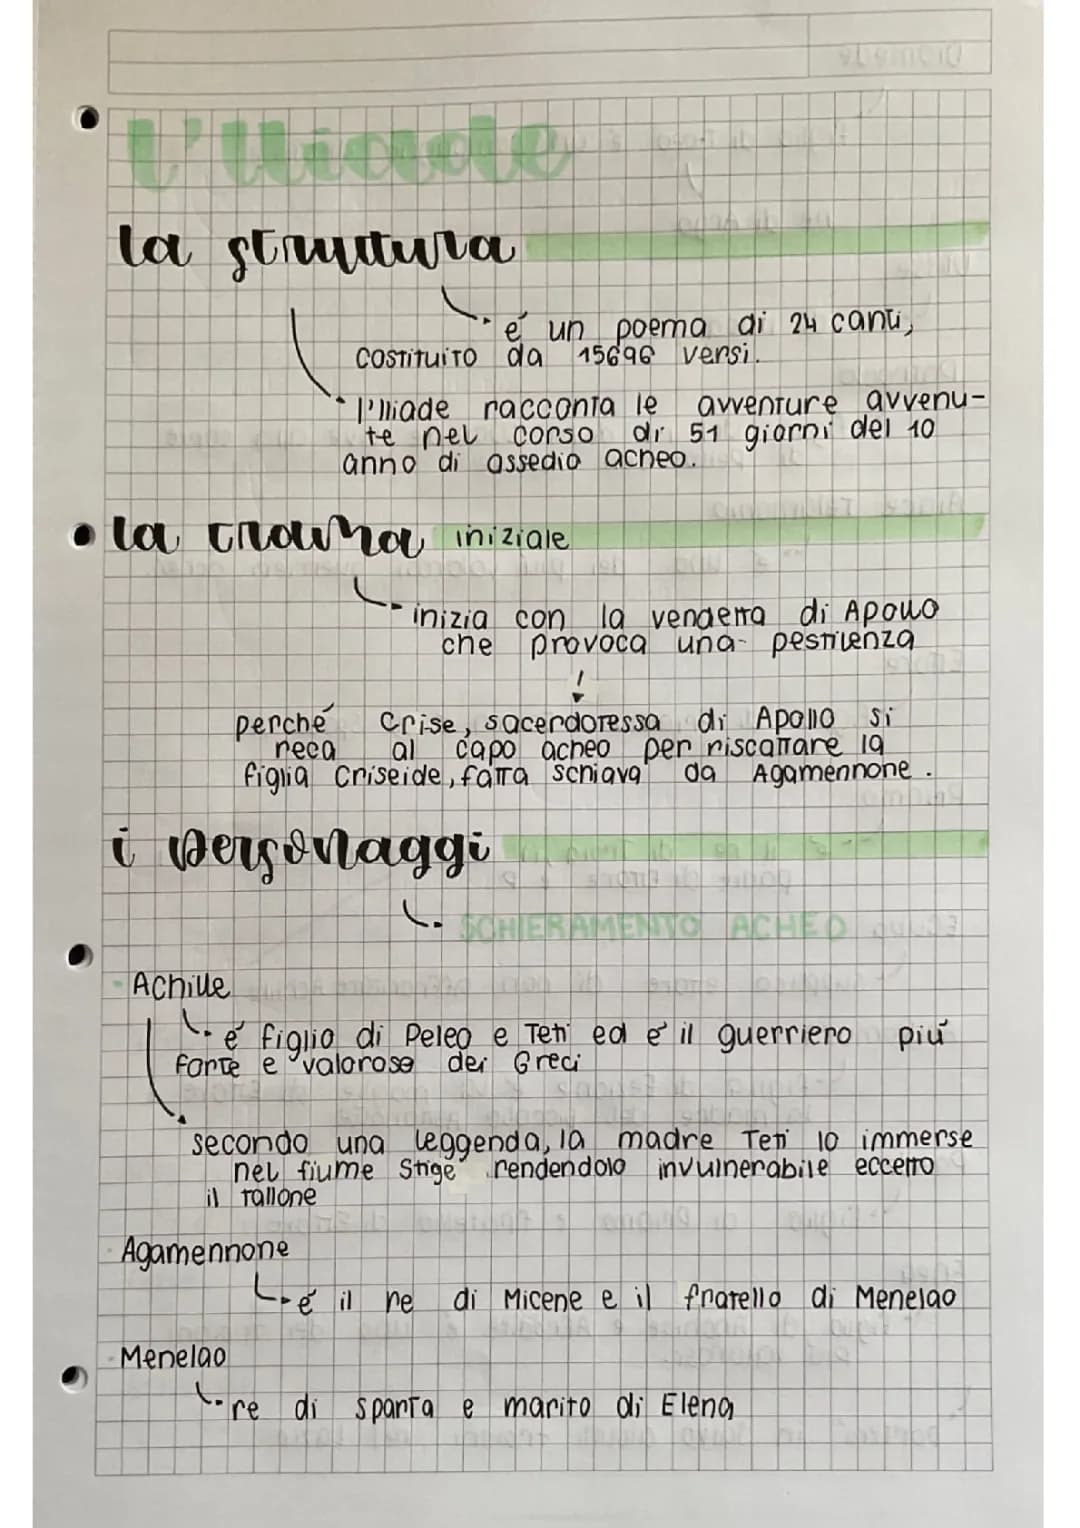 L'Iliade
la struttura
é un poema di 24 canti,
costituito da 15696 versi.
l'Iliade racconta le avventure avvenu-
te nel corso di 51 giorni del 10
anno di assedio acheo.
la trama iniziale
inizia con la vendetta di Apollo
che provoca una pestilenza
perché Crise, sacerdotessa di Apollo si
reca al capo acheo per riscattare la
figlia Criseide, fatta schiava da Agamennone.
i personaggi
SCHIERAMENTO ACHEO
Achille
é figlio di Peleo e Teti ed é il guerriero piú
forte e valoroso dei Greci
secondo una leggenda, la madre Teti lo immerse
nel fiume Stige rendendolo invulnerabile eccetto
il tallone
Agamennone
é il re di Micene e il fratello di Menelao
Menelao
re di Sparta e marito di Elena